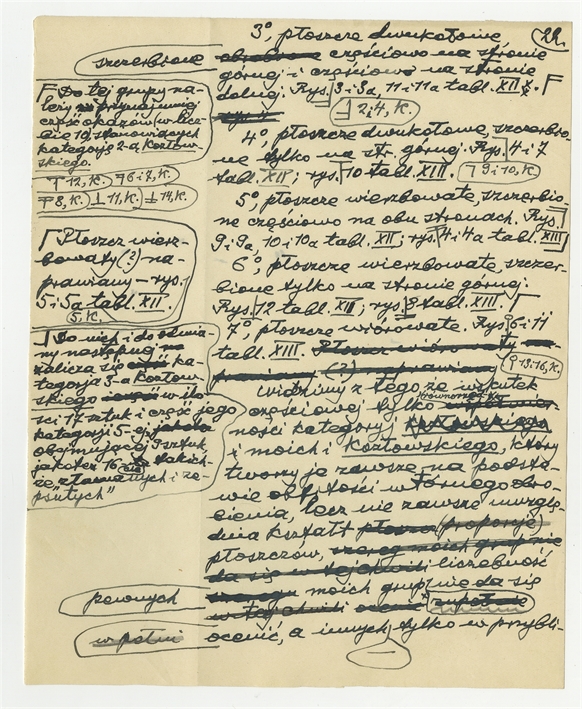 22.
3°, płoszcze dwukołowe
szczerbione częściowo na stronie
górnej i częściowo na stronie
dolnej. Rys. 3 i 3a, 11 i 11a tabl. XII
2 i 4, K.
4°, płoszcze dwukołowe, szczerbio-
ne tylko na str. górnej. Rys. 4 i 7
tabl. XII; rys. 10 tabl. XIII. 9 i 10, K.
5°, płoszcze wierzbowate, szczerbio-
ne częściowo na obu stronach. Rys.
9 i 9a, 10 i 10a tabl. XII; rys. 4 i 4a tabl. XIII
6°, płoszcze wierzbowate, szczer-
bione tylko na stronie górnej.
Rys. 12 tabl. XII, rys. 8 tabl. XIII.
7°, płoszcze wiórowate. Rys. 6 i 11
tabl. XIII.
13-16, K.
Widzimy z tego, że wskutek
częściowej tylko
ności kategoryj
i moich i Kozłowskiego, który
tworzy je zawsze na podsta-
wie obfitości wtórnego obro-
bienia, lecz nie zawsze uwzglę-
dnia kształt (proporcje)
płoszczów,
liczebność
moich grup nie da się
ocenić, a innych tylko w przybli-
szczerbione
Do tej grupy na-
leży przynajmniej
część okazów w licz-
bie 10, stanowiących
kategorję 2-a Kozłow-
skiego.
12, K. 6 i 7, K.
8, K. 11, K. 14, K.
Płoszcz wierz-
bowaty (?) na-
prawiany – rys.
5 i 5a tabl. XII.
5, K.
Do niej i do odmia-
ny następnej
zalicza się ka-
tegorja 3-a Kozłow-
skiego w ilo-
ści 17 sztuk i część jego
kategorji 5-ej
obejmującej 9 sztuk,
jakoteż 16 takich-
że, "złamanych i ze-
psutych"
pewnych
w pełni